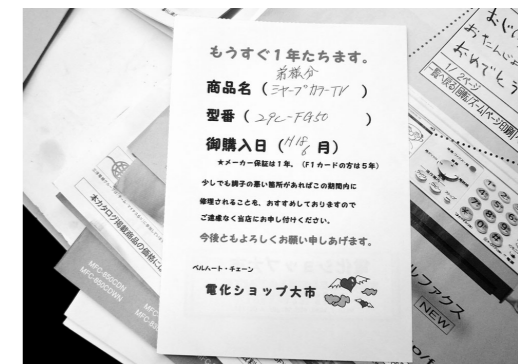 もうすぐ1年たちます。
弟様分
商品名(シャープカラーTV)
型番(29C-FG50)
御購入日(H18 6月)
★メーカー保証は1年。(F1カードの方は5年)
少しでも調子の悪い箇所があればこの期間内に
修理されることを、おすすめしておりますので
ご遠慮なく当店にお申し付けください。
今後ともよろしくお願い申しあげます。
ベルハート・チェーン
電化ショップ大市
本カタログ掲載商品の価格に
MFC-850CDN
MFC-850CDWN
おじい
おたんじょ
おめでとう
1/2ページ
一覧へ戻る 回転/ズーム ページ印刷
ルファクス
NEW